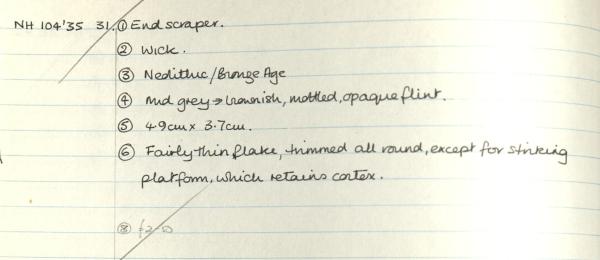 NH 104'35 31. ① End scraper.
② Wick.
③ Neolithic/Bronze Age
④ Mid grey → brownish, mottled, opaque flint.
⑤ 4.9cm x 3.7cm.
⑥ Fairly thin flake, trimmed all round, except for striking
platform, which retains cortex.
⑧ £2-0